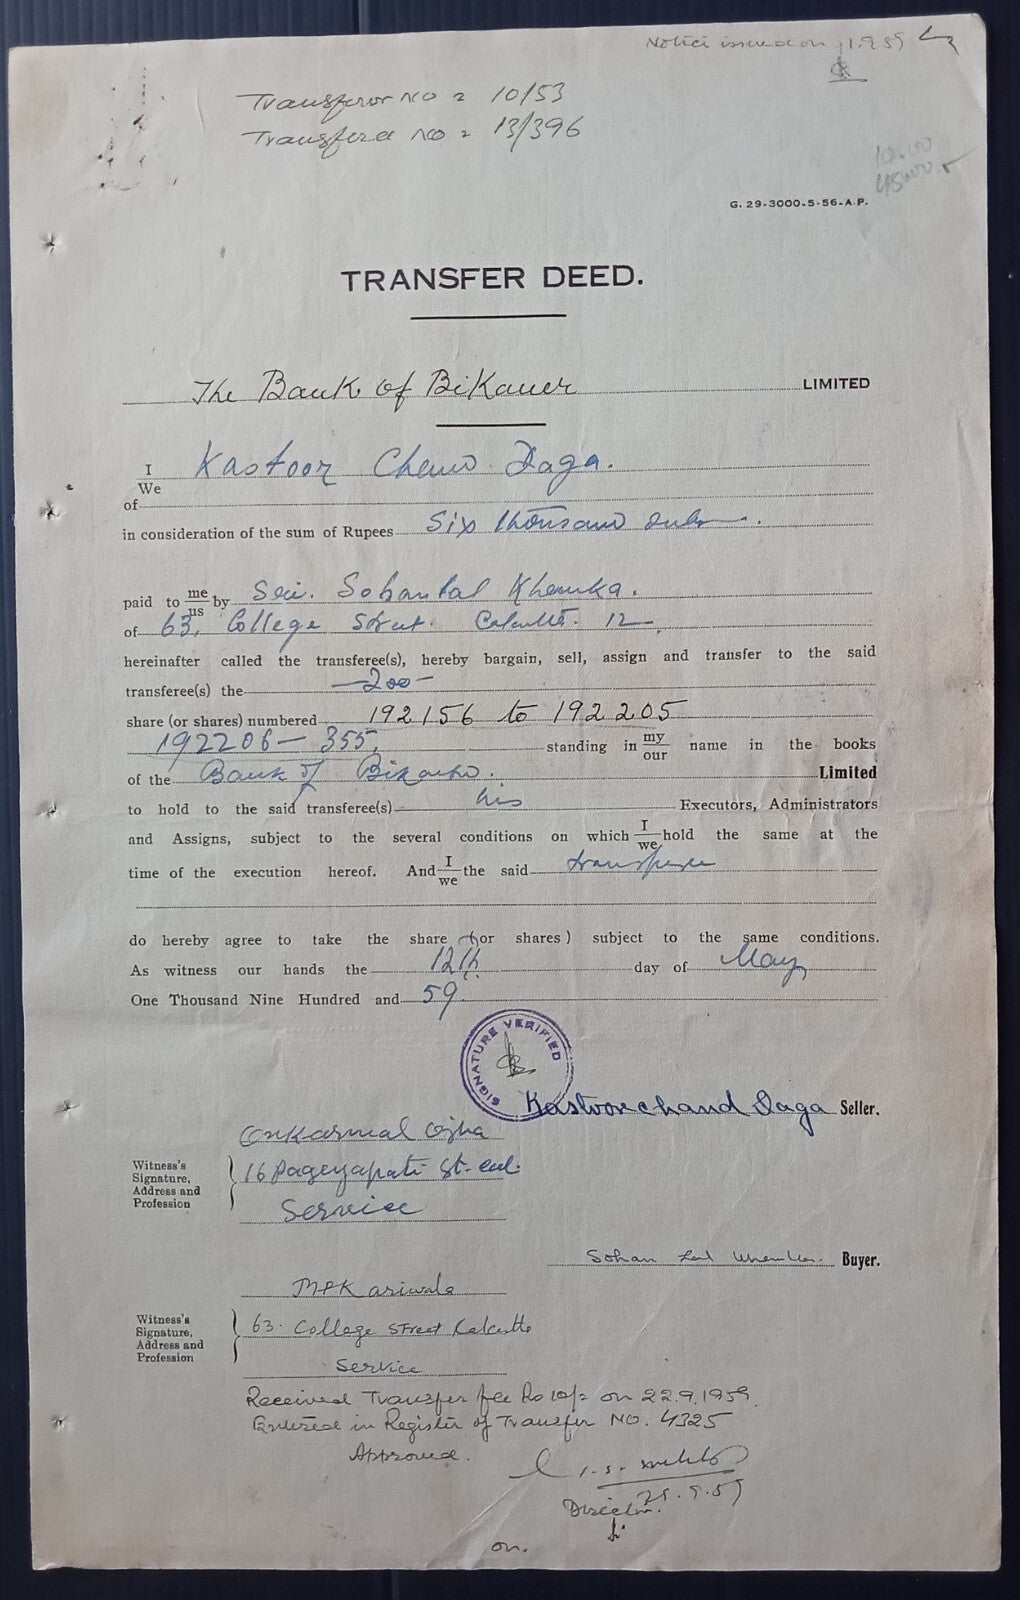 Notice issued on 1.9.59
Transferor No = 10/53
Transferee No = 13/396
G. 29-3000-5-56-A.P.
TRANSFER DEED.
The Bank of Bikaner LIMITED
I
We
Kastoor Chand Daga.
of
in consideration of the sum of Rupees Six thousand only.
paid to me
us by Sri. Sohanlal Khemka.
of 63, College Street. Calcutta. 12
hereinafter called the transferee(s), hereby bargain, sell, assign and transfer to the said
transferee(s) the —200—
share (or shares) numbered 192156 to 192205
192206 — 355, standing in my
our name in the books
of the Bank of Bikaner. Limited
to hold to the said transferee(s) his Executors, Administrators
and Assigns, subject to the several conditions on which I
we hold the same at the
time of the execution hereof. And I
we the said transferee
do hereby agree to take the share (or shares) subject to the same conditions.
As witness our hands the 12th day of May
One Thousand Nine Hundred and 59
SIGNATURE VERIFIED
Kastoorchand Daga Seller.
Onkarmal Ojha
Witness's
Signature,
Address and
Profession
16 Pageyapati St. Cal.
Service
Sohan Lal Khemka. Buyer.
MPKariwala
Witness's
Signature,
Address and
Profession
63. College Street Calcutta
Service
Received Transfer fee Rs 10/= on 22.9.1959.
Entered in Register of Transfer NO. 4325
Approved.
Director.
on.